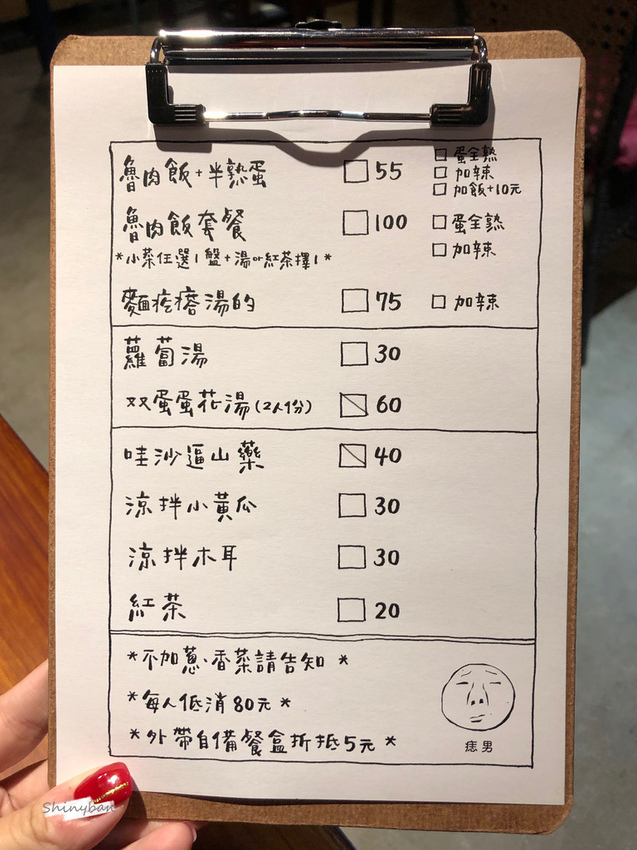 魯肉飯+半熟蛋 55 蛋全熟
加辣
加飯+10元
魯肉飯套餐 100 蛋全熟
*小菜任選1盤+湯or紅茶擇1* 加辣
麵疙瘩湯的 75 加辣
蘿蔔湯 30
双蛋蛋花湯(2人份) 60
哇沙逼山藥 40
涼拌小黃瓜 30
涼拌木耳 30
紅茶 20
*不加蔥、香菜請告知*
*每人低消80元*
*外帶自備餐盒折抵5元*
痣男
Shinyban